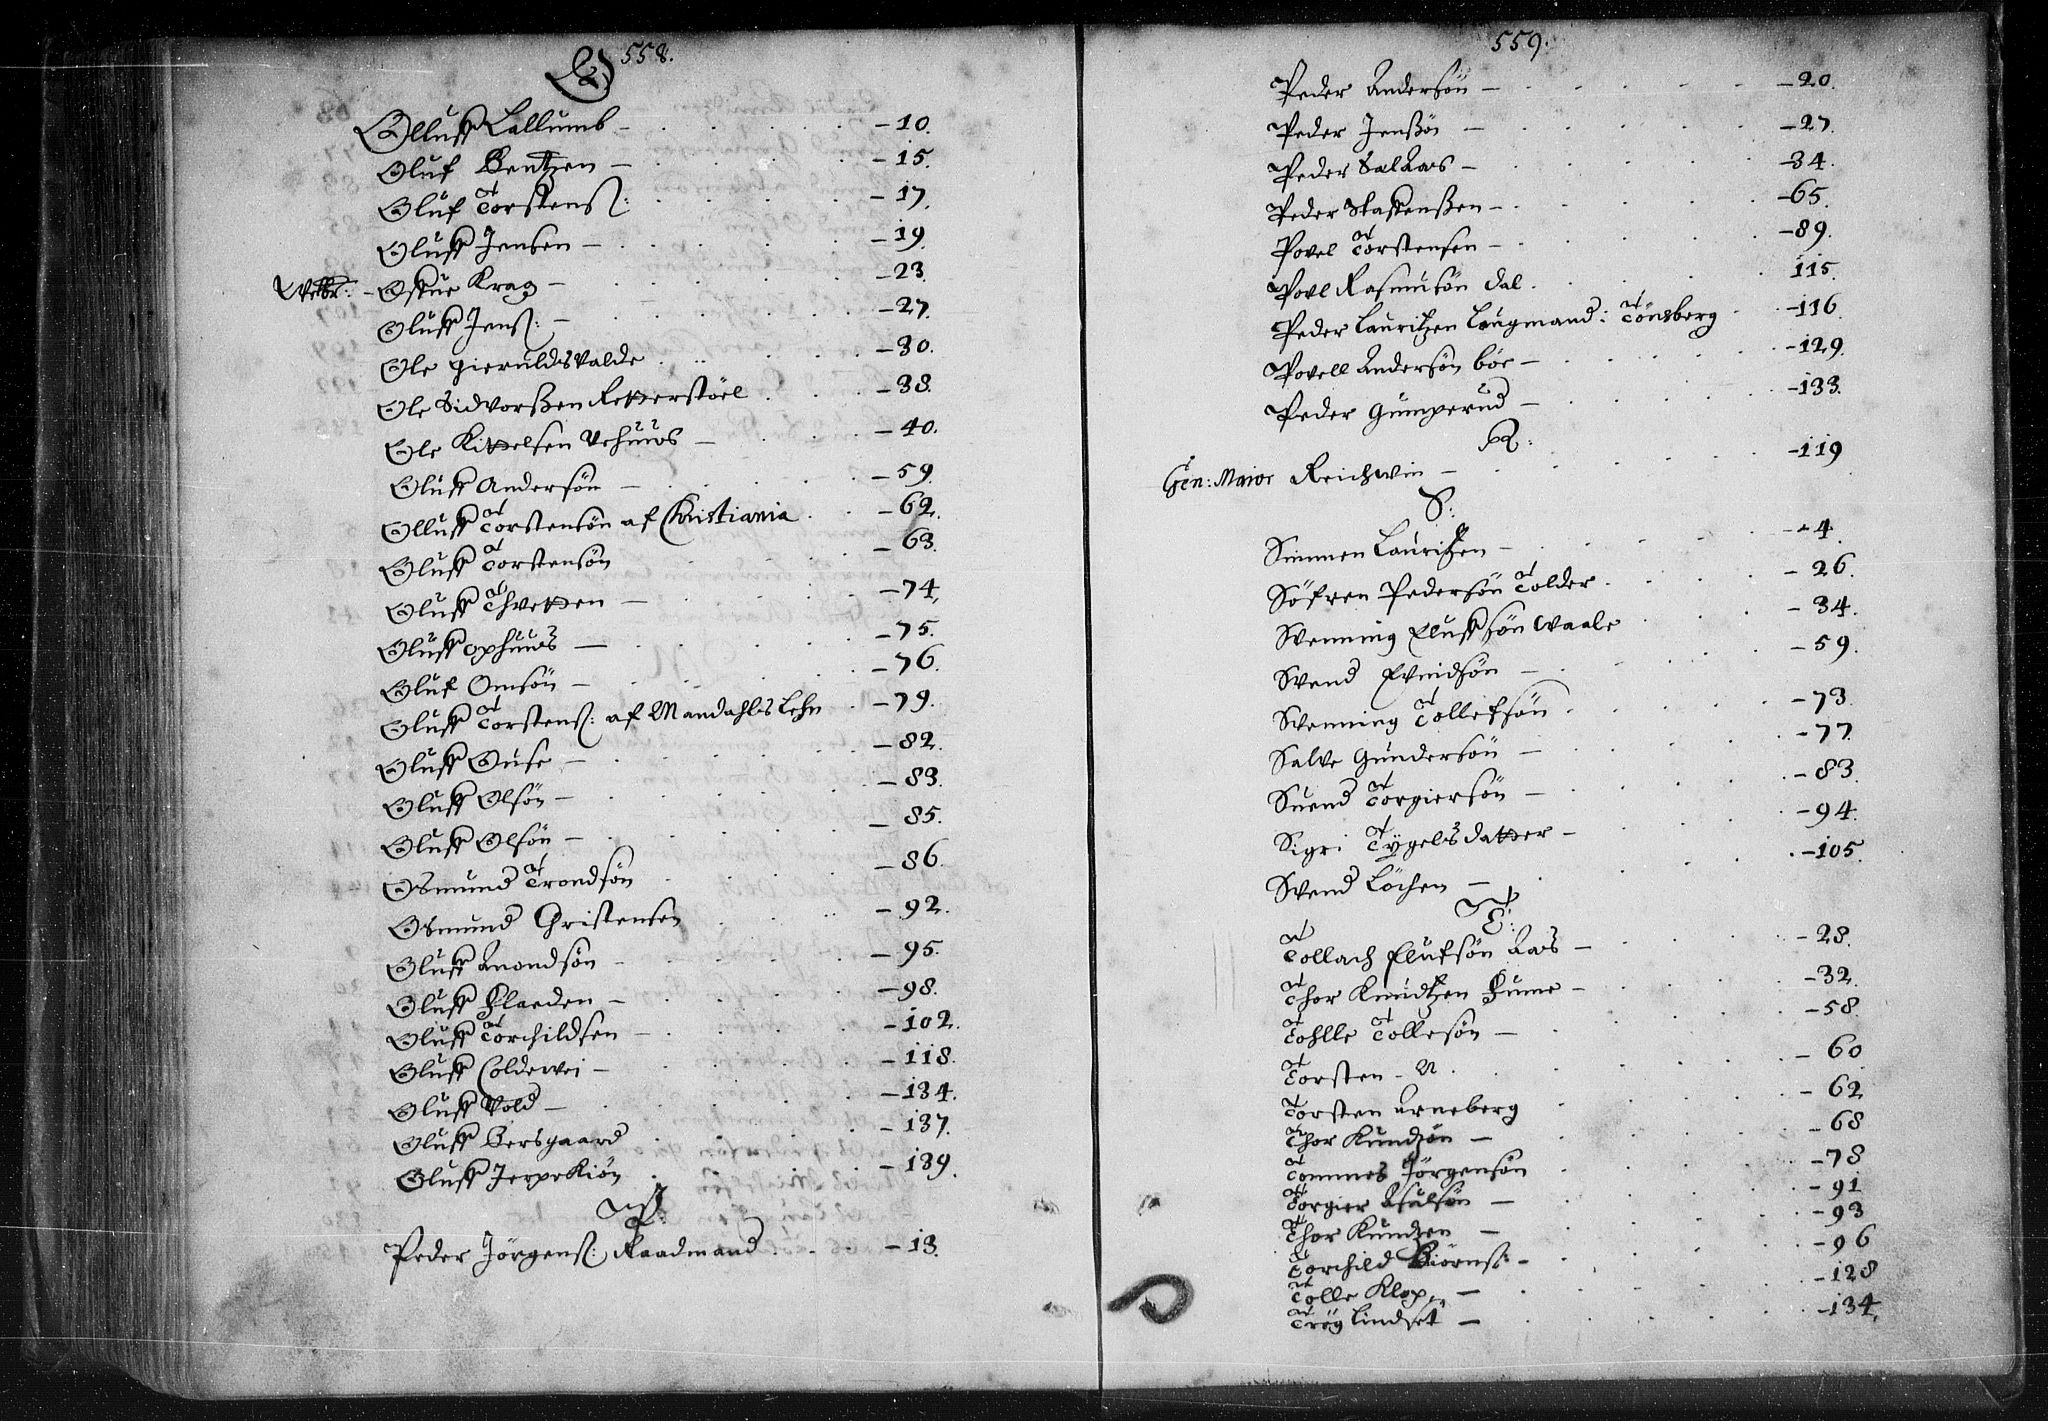 558.
O
Olluff Lallumb - 10.
Oluf Bentzen - 15.
Oluf Torstens: - 17.
Oluff Jensen - 19.
Welb: - Offue Krag - 23.
Oluff Jens: - 27.
Ole Gieruldsvalde - 30.
Ole Sidvorßen Retterstöel - 38.
Ole Kittelsen Vehuus - 40.
Oluff Andersön - 59.
Olluff Torstensön af Christiania - 62.
Oluff Torstensön - 63.
Oluff Thvetten - 74.
Oluff Ophuus - 75.
Oluf Omsön - 76.
Oluff Torstens: af Mandahls Lehn - 79.
Oluff Ouse - 82.
Oluff Olsön - 83.
Oluff Olsön - 85.
Osmund Trondsön - 86.
Osmund Christensen - 92.
Oluff Anondsön - 95.
Oluff Flaeden - 98.
Oluff Torchildsen - 102.
Oluff Coldewei - 118.
Oluff Vold - 134.
Oluff Bersgaard - 137.
Oluff Jerpekiön - 139.
P:
Peder Jörgens: Raadmand - 13.
559.
Peder Andersön - 20.
Peder Jenßön - 27.
Peder Salaas - 34.
Peder Staffenßen - 65.
Povel Torstensen - 89.
Povl Rasmusön Dal. 115.
Peder Lauritzen Laugmand: Tönsberg - 116.
Povell Andersön böe - 129.
Peder Gumperud - 133.
R:
Gen: Maior Reichwin - 119
S:
Simmen Lauritzen - 4.
Söfren Pedersön Tolder - 26.
Svenning Eluffsön Waale - 34.
Svend Evindsön - 59.
Svenning Tollefsön - 73.
Salve Gundersön - 77.
Suend Torgiersön - 83.
Sigri Tygelsdatter - 94.
Svend Löchen - 105.
T:
Tollach Elufsön Aas - 28.
Thor Knudtzen Fume - 32.
Tohlle Tollesön - 58.
Torsten - N. - 60
Torsten Arneberg - 62
Thor Kundsön - 68
Tommes Jörgensön - 78
Torgier Asulsön - 91
Thor Kundzen - 93
Torchild Biörns: - 96
Tolle Klop - 128
Trög Lindset - 134.